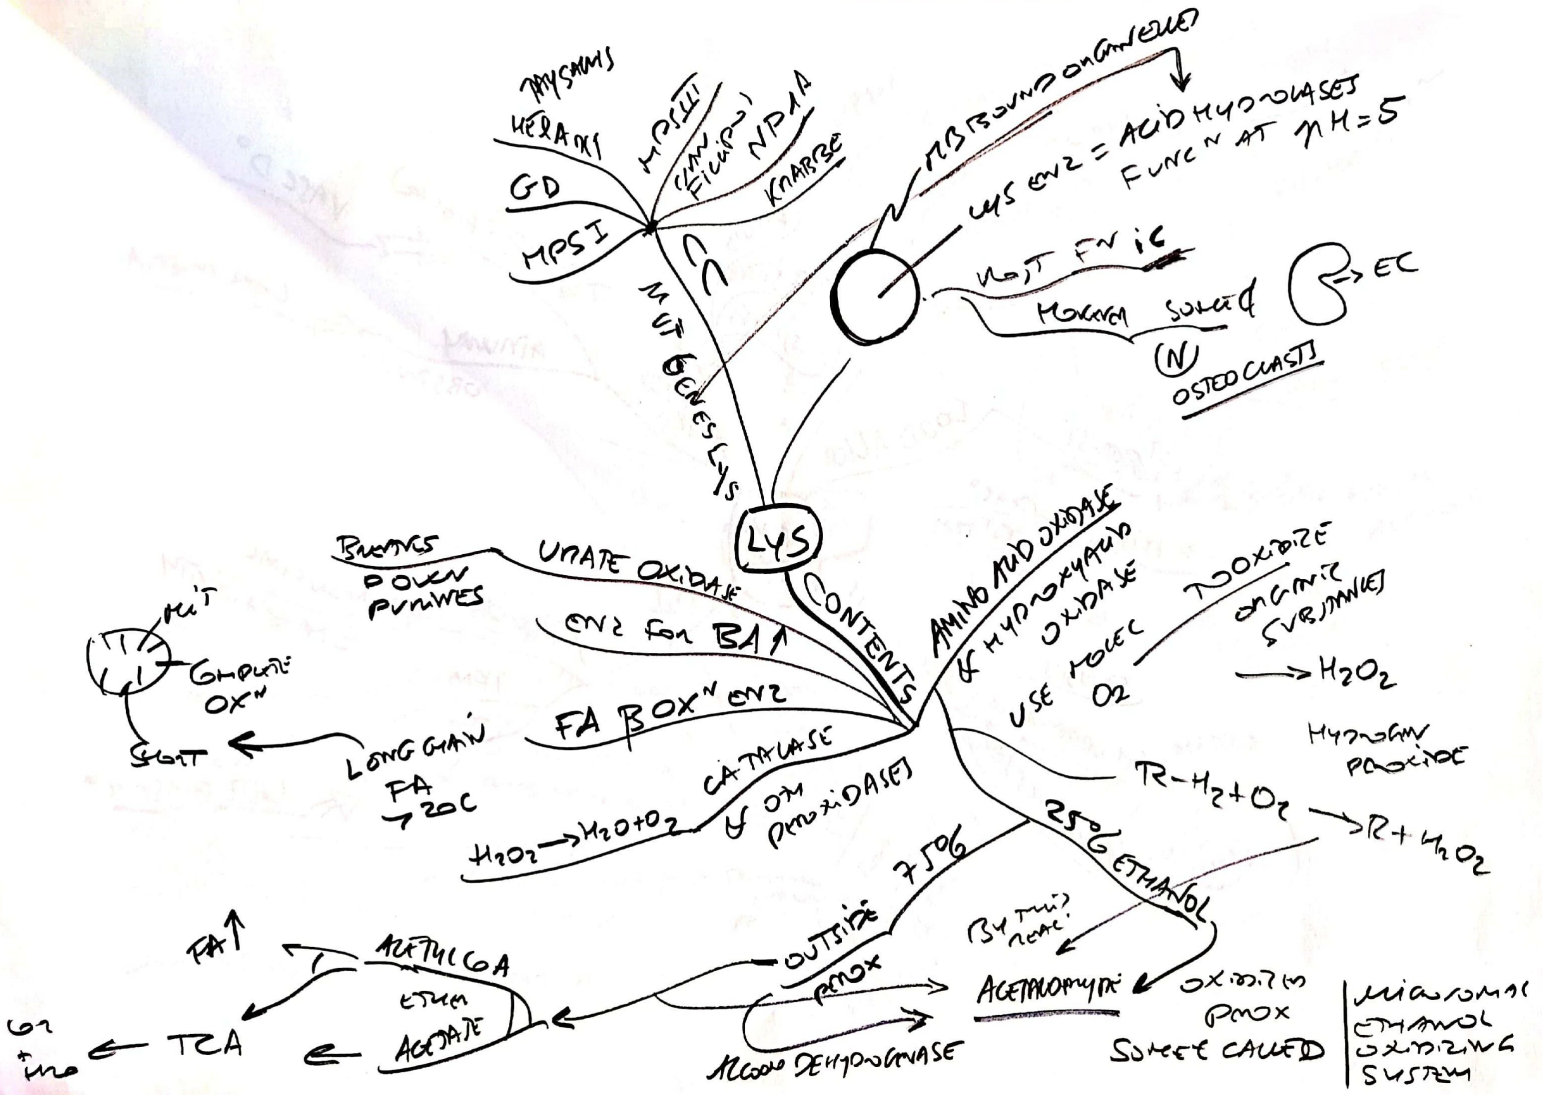 TAYSACHS
HERLAXI
GD
MPSI
MPSIII
(SAN
FILIPPO)
NPDA
KRABBE
MUT GENES LYS
MB BOUND ORGANELLES
LYS ENZ = ACID HYDROLASES
FUNCN AT pH=5
MOST FN IC
HOWEVER SOME
(N)
OSTEOCLASTS
→ EC
LYS
CONTENTS
URATE OXIDASE
BREAKS
DOWN
PURINES
ENZ FOR BA↑
FA β OXN ENZ
LONG CHAIN
FA
> 20C
SHORT
MIT
COMPLETE
OXN
CATALASE
& OTH
PEROXIDASES
H2O2→H2O+O2
AMINO ACID OXIDASE
& HYDROXYACID
OXIDASE
USE MOLEC
O2
TO OXIDIZE
ORGANIC
SUBSTANCES
→ H2O2
HYDROGEN
PEROXIDE
R-H2+O2 → R+H2O2
25% ETHANOL
75%
OUTSIDE
PEROX
BY THIS
REAC.
ACETALDEHYDE
OXIDIZES
PEROX
SOMEE CALLED
MICROSOMAL
ETHANOL
OXIDIZING
SYSTEM
ALCOHO DEHYDROGENASE
ACETYL COA
ETHER
ACETATE
FA↑
TCA
CO2
+
H2O